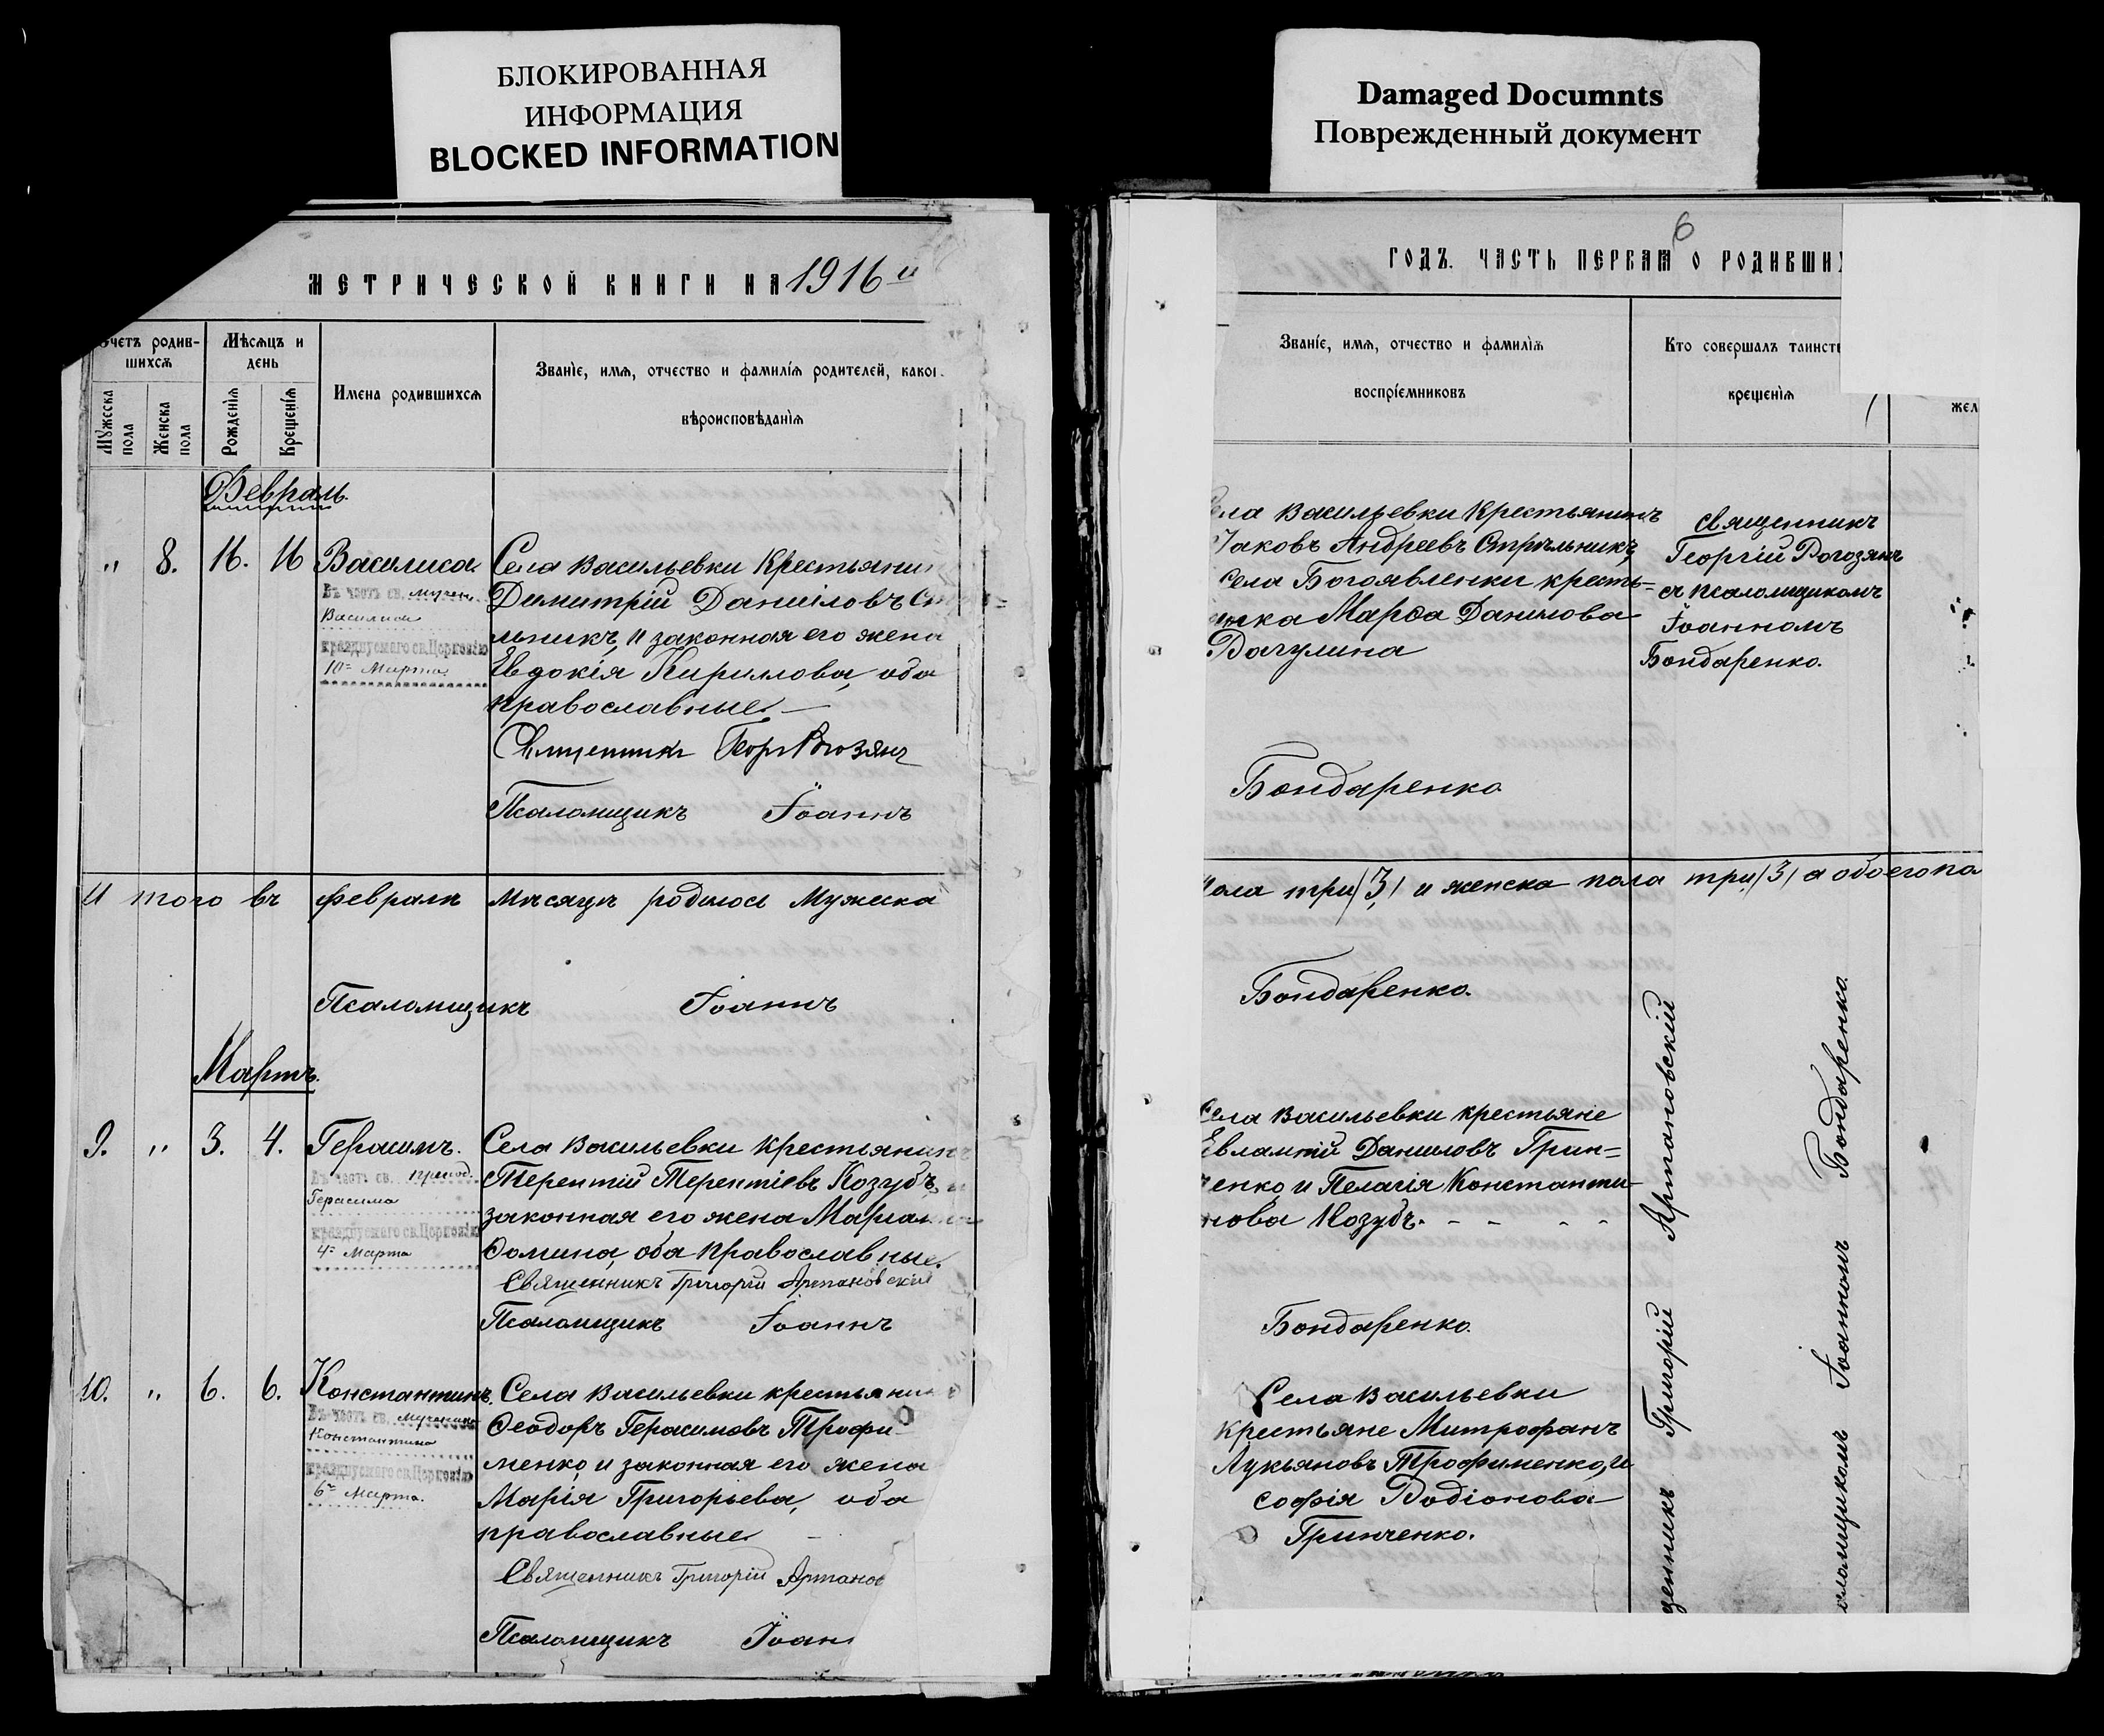 БЛОКИРОВАННАЯ
ИНФОРМАЦИЯ
BLOCKED INFORMATION
Damaged Documnts
Поврежденный документ
МЕТРИЧЕСКОЙ КНИГИ НА 1916 й
Счетъ родив-
шихся
Мѣсяцъ и
день
Мужеска
пола
Женска
пола
Рожденія
Крещенія
Имена родившихся
Званіе, имя, отчество и фамилія родителей, каког
вѣроисповѣданія
Февраль.
„ 8. 16. 16 Василиса.
Въ честь св. мучен.
Василисы
празднуемаго св. Церковію
10го Марта.
Села Васильевки Крестьянин
Димитрій Даніиловъ Ст
льникъ, и законная его жена
Евдокія Кириллова, оба
православные. —
Священникъ Георг Рогозянъ
Псаломщикъ Іоаннъ
Итого въ февралѣ мѣсяцѣ родилось Мужеска
Псаломщикъ Іоаннъ
Мартъ.
9. „ 3. 4. Герасимъ.
Въ честь св. препод.
Герасима
празднуемаго св. Церковію
4го Марта
Села Васильевки крестьянинъ
Терентій Терентіевъ Козубъ, и
законная его жена Маріанна
Ѳомина, оба православные.
Священникъ Григорій Артановскій
Псаломщикъ Іоаннъ
10. „ 6. 6. Константинъ.
Въ честь св. мученика
Константина
празднуемаго св. Церковію
6го Марта.
Села Васильевки крестьянинъ
Ѳеодоръ Герасимовъ Трофи
менко, и законная его жена
Марія Григорьева, оба
православные. —
Священникъ Григорій Артанов
Псаломщикъ Іоан
6
ГОДЪ. ЧАСТЬ ПЕРВАЯ О РОДИВШИХ
Званіе, имя, отчество и фамилія
воспріемниковъ
Кто совершалъ таинст
крещенія
жел
Села Васильевки Крестьянинъ
Іаковъ Андреевъ Стрѣльникъ,
села Богоявленки кресть=
янка Марѳа Данилова
Священникъ
Георгій Рогозянъ
съ псаломщикомъ
Іоанномъ
Бондаренко.
Бондаренко
пола три /3/ и женска пола три /3/ а обоего по
Бондаренко.
Села Васильевки крестьяне
Евлампій Даниловъ Грин=
ченко и Пелагія Константи-
нова Козубъ. - - - -
Бондаренко.
Села Васильевки
крестьяне Митрофанъ
Лукьяновъ Трофименко, и
Софія Родіонова
Гринченко.
щенникъ Григорій Артановскій
аломщикомъ Іоанномъ Бондаренко.